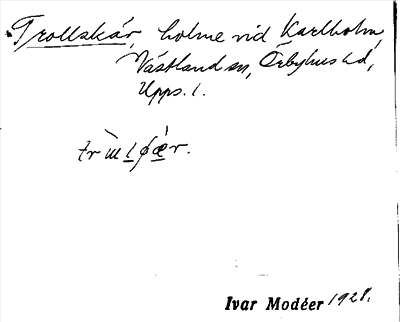 Trollskär, holme vid Karlholm,
Västland sn, Örbyhus hd,
Upps. l.
Ivar Modéer 1928.